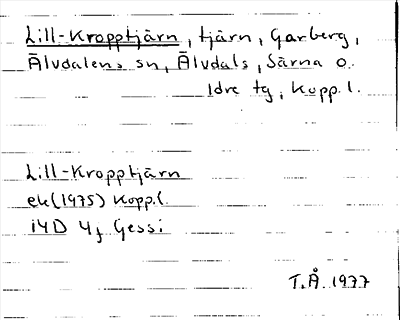 Lill-Kropptjärn, tjärn, Garberg,
Älvdalens sn, Älvdals, Särna o.
Idre tg, Kopp. l.
Lill-Kropptjärn
ek (1975) Kopp. l.
14D 4j Gessi
T.Å. 1977